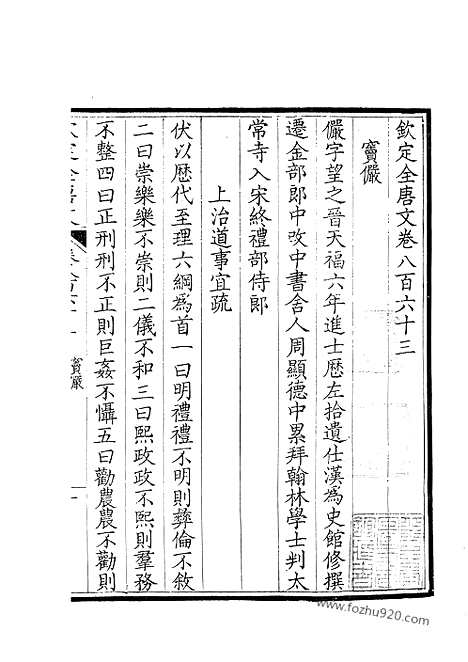 欽定全唐文卷八百六十三
竇儼
儼字望之晉天福六年進士歷左拾遺仕漢為史館修撰
遷金部郎中改中書舍人周顯德中累拜翰林學士判太
常寺入宋終禮部侍郎
上治道事宜疏
伏以歷代至理六綱為首一曰明禮禮不明則彝倫不敘
二曰崇樂樂不崇則二儀不和三曰熙政政不熙則羣務
不整四曰正刑刑不正則巨姦不懾五曰勸農農不勸則
竇儼
www.fozhu920.com